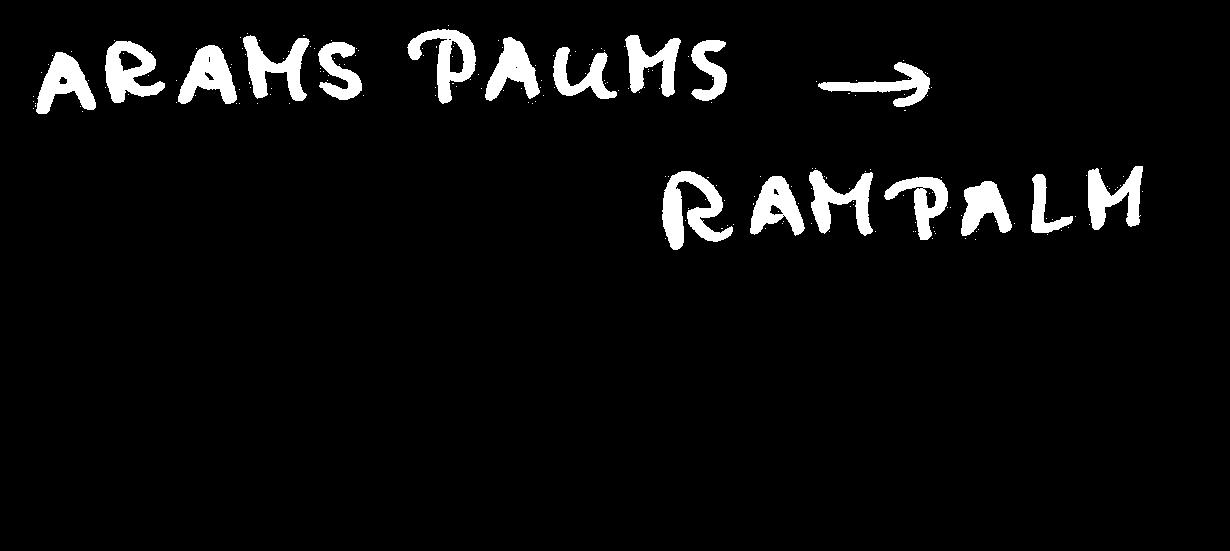 ARAMS PAUMS →
RAMPALM